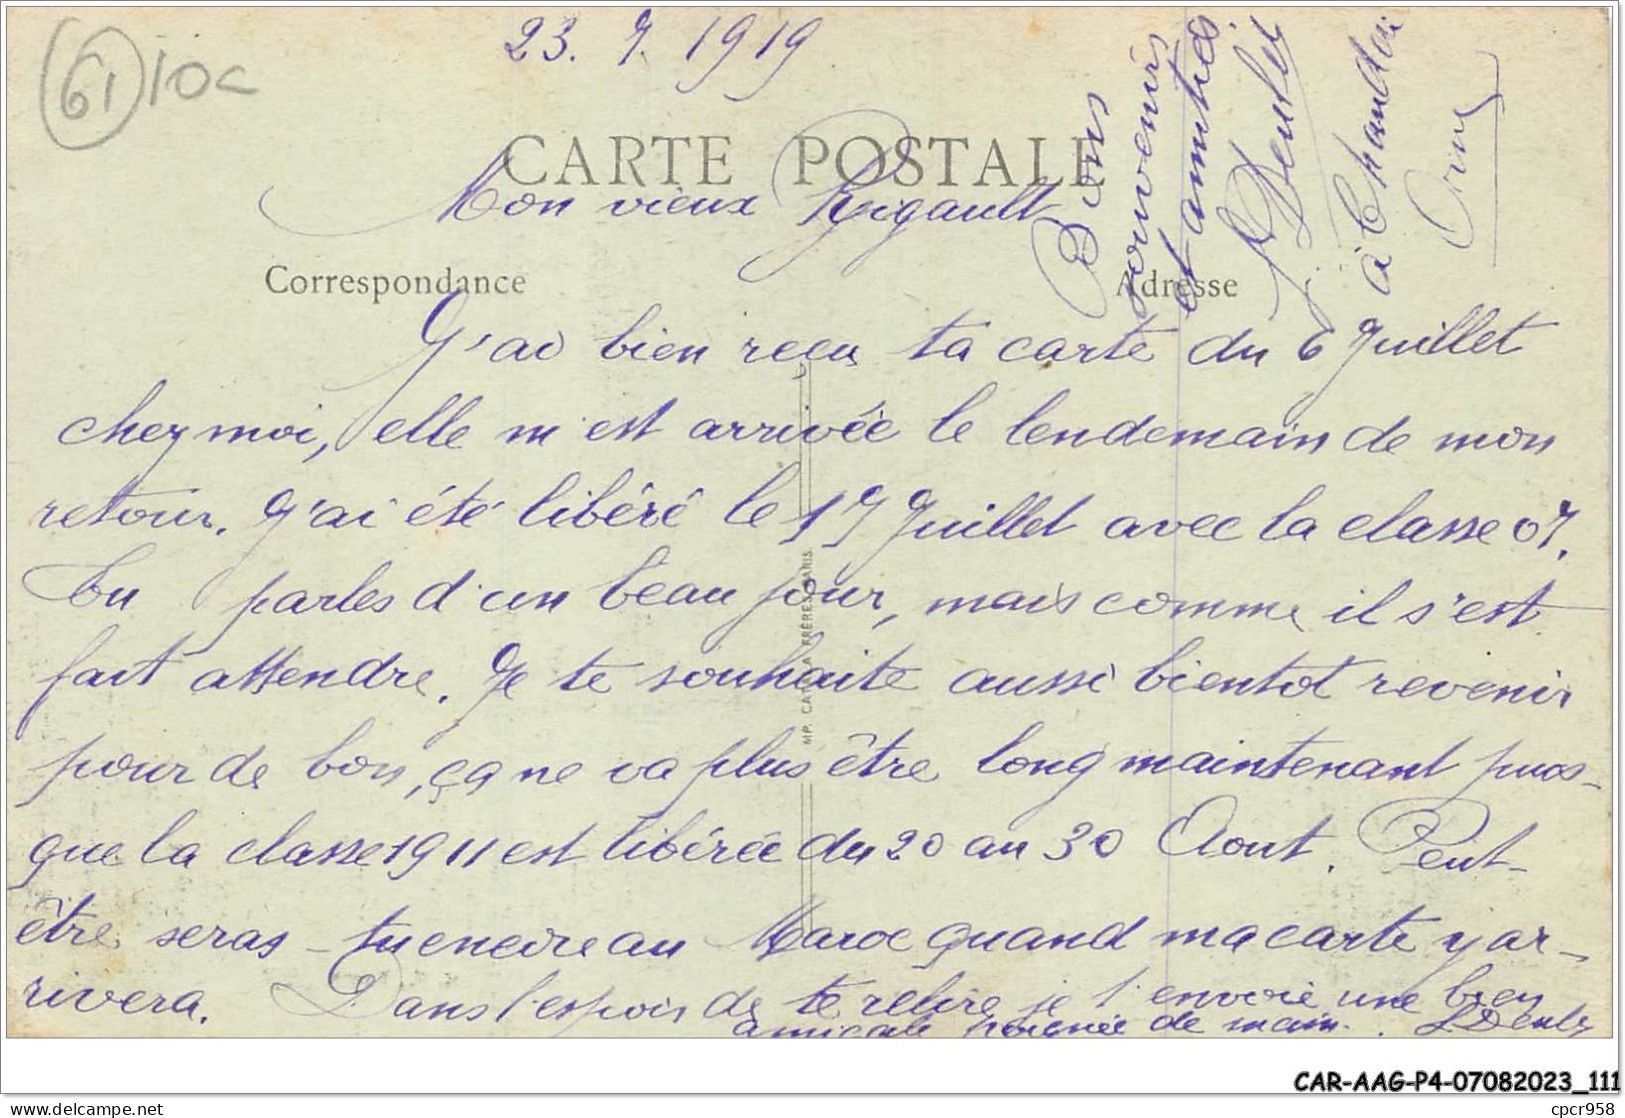 23. 7. 1919
61 10c
CARTE POSTALE
Mon vieux Rigault
Correspondance
Adresse
J'ai bien reçu ta carte du 6 Juillet
chez moi, elle m'est arrivée le lendemain de mon
retour. J'ai été libéré le 17 Juillet avec la classe 07.
Tu parles d'un beau jour, mais comme il s'est
fait attendre. Je te souhaite aussi bientot revenir
pour de bon, ça ne va plus être long maintenant puis-
que la classe 1911 est libérée du 20 au 30 Aout. Peut-
être seras-tu encore au Maroc quand ma carte y ar-
rivera. Dans l'espoir de te relire je t'envoie une bien
amicale poignée de main.
Bons
souvenirs
et amitiés
à
Orne
IMP. CATALA FRÈRES PARIS
CAR-AAG-P4-07082023_111
delcampe.net
cpcr958